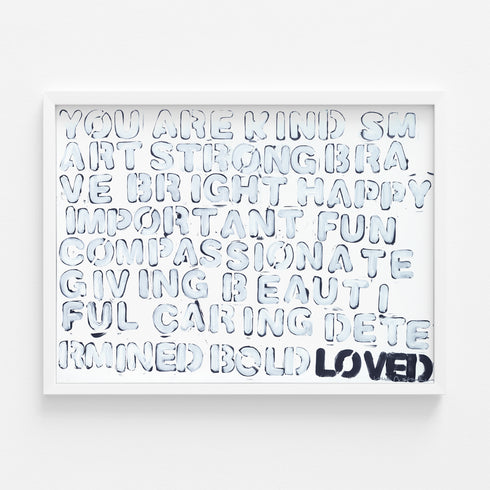 YOU ARE KIND SM
ART STRONG BRA
VE BRIGHT HAPPY
IMPORTANT FUN
COMPASSIONATE
GIVING BEAUTI
FUL CARING DETE
RMINED BOLD LOVED